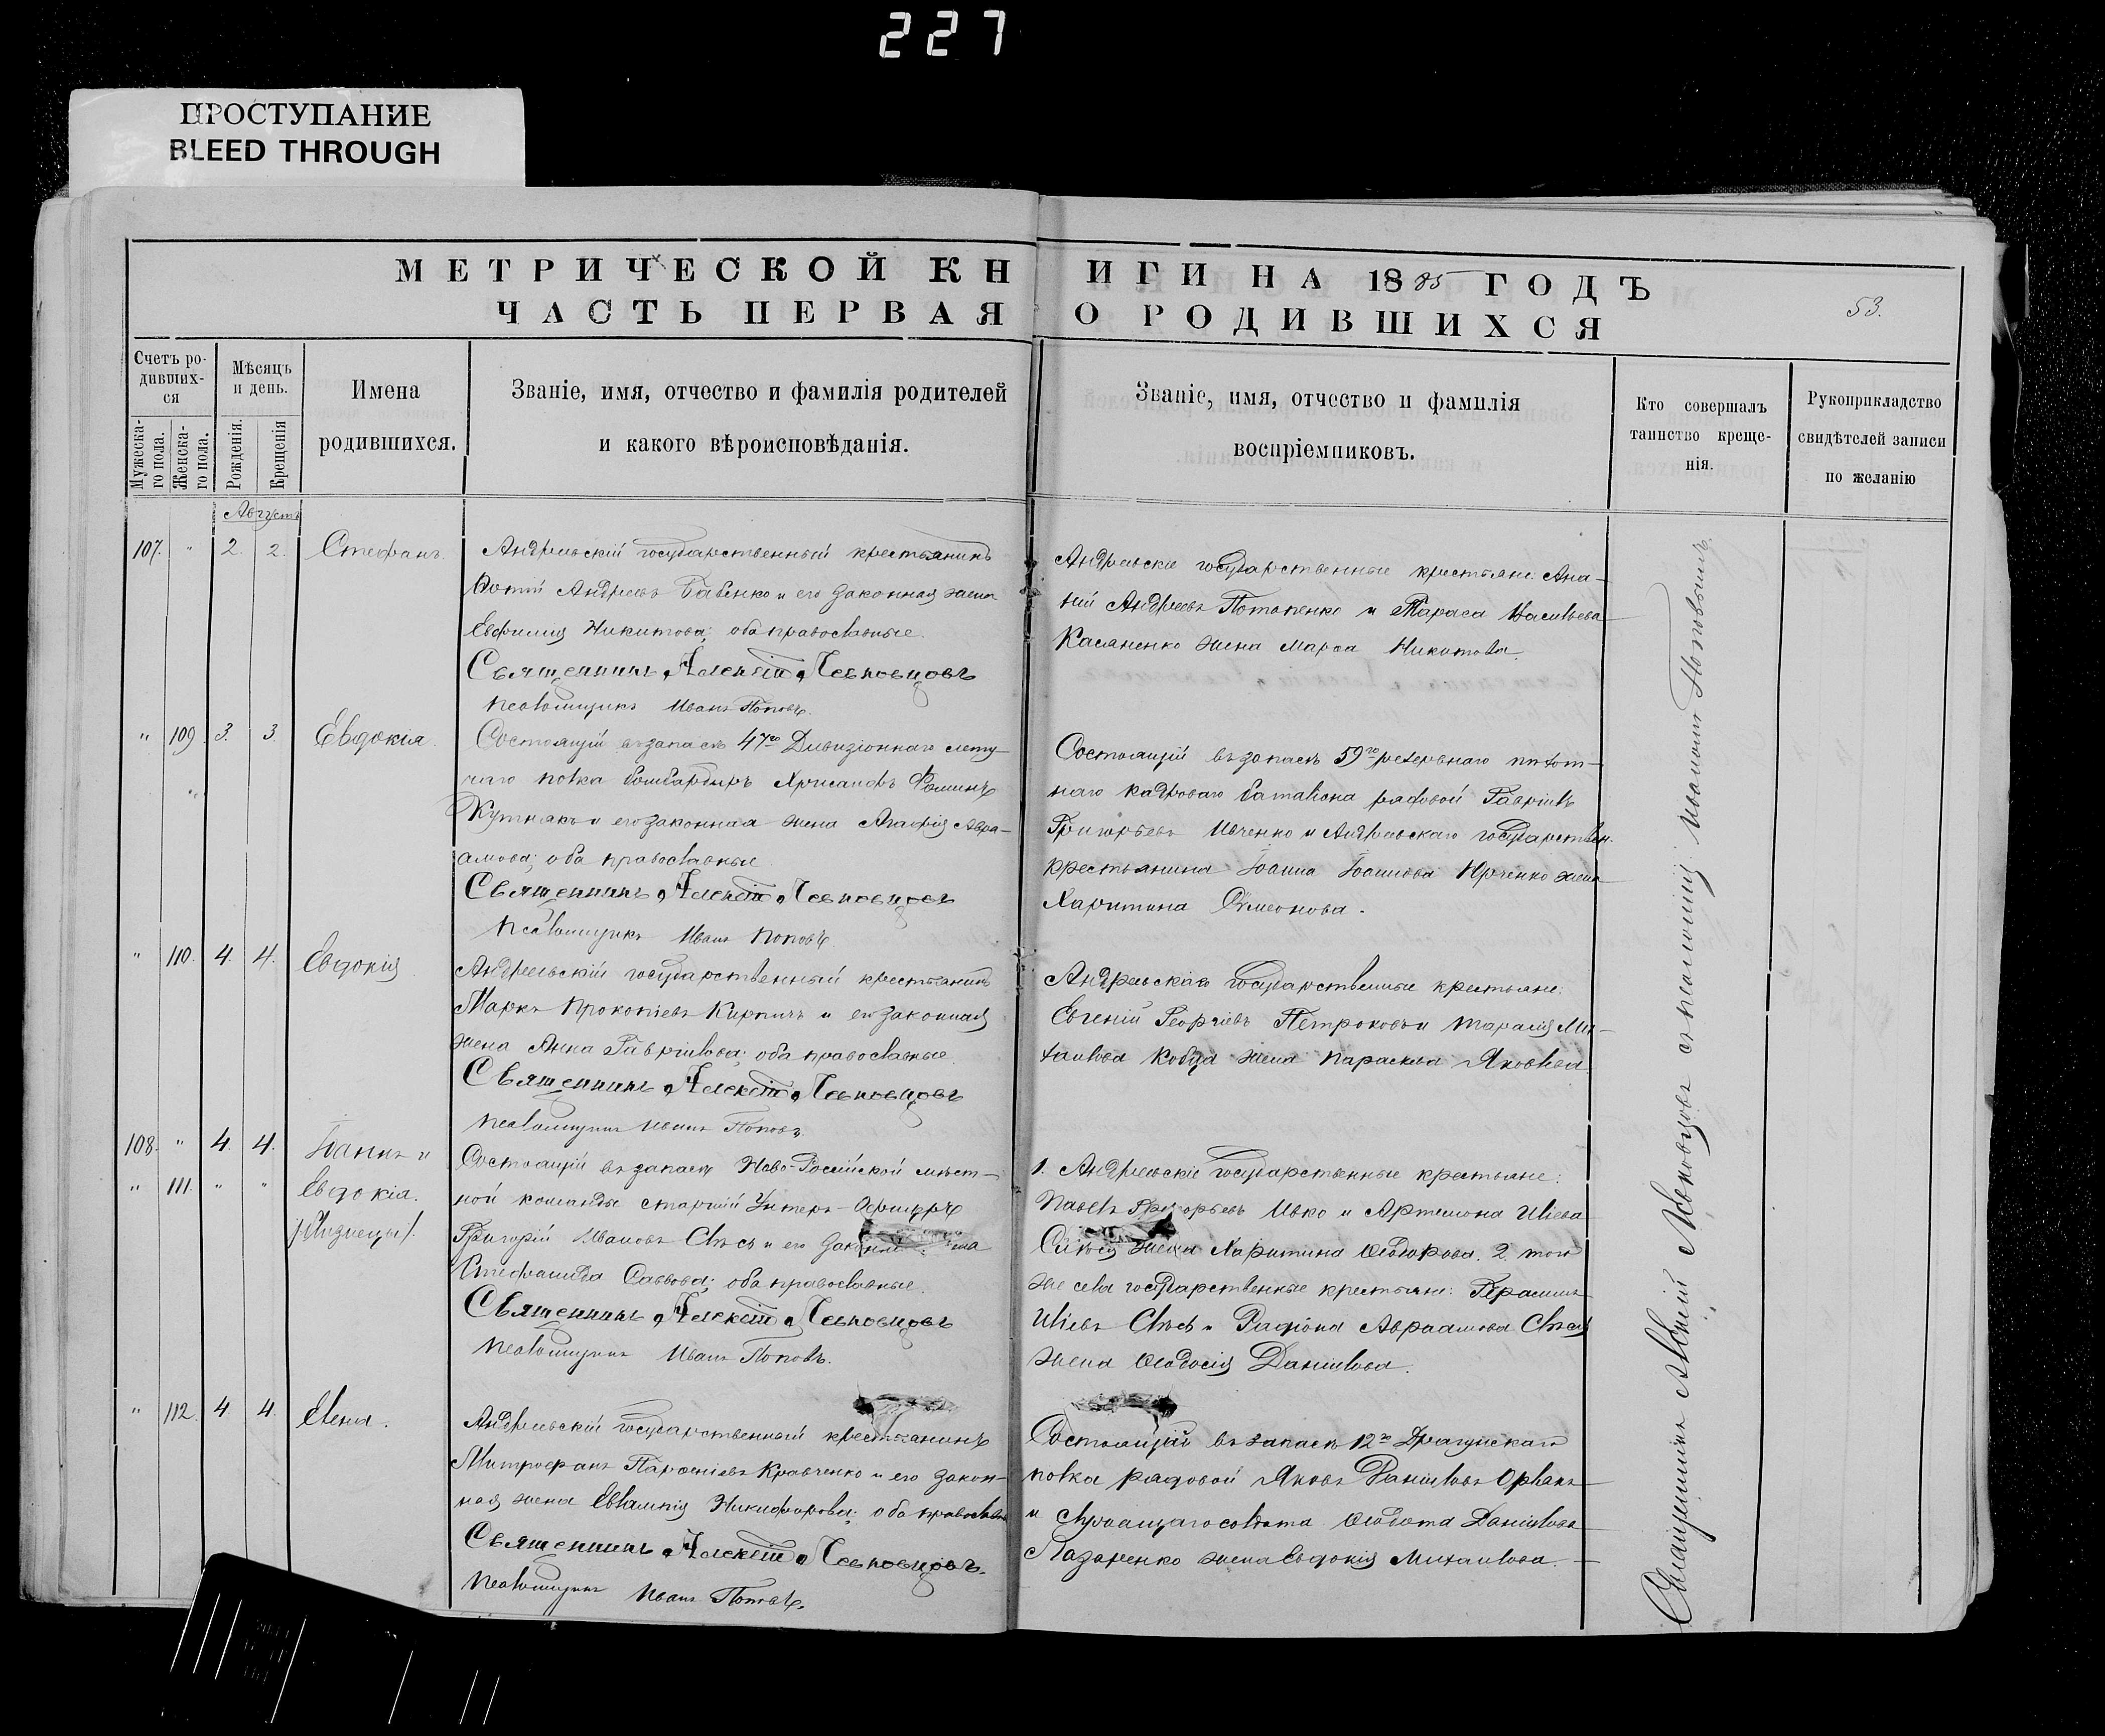 227
ПРОСТУПАНИЕ
BLEED THROUGH
МЕТРИЧЕСКОЙ КНИГИ НА 1885 ГОДЪ
53.
ЧАСТЬ ПЕРВАЯ О РОДИВШИХСЯ
Счетъ ро-
дивших-
ся
Мужеска-
го пола.
Женска-
го пола.
Мѣсяцъ
и день.
Рожденія.
Крещенія
Имена
родившихся.
Званіе, имя, отчество и фамилія родителей
и какого вѣроисповѣданія.
Званіе, имя, отчество и фамилія
воспріемниковъ.
Кто совершалъ
таинство креще-
нія.
Рукоприкладство
свидѣтелей записи
по желанію
Августъ
107. " 2. 2. Стефанъ.
Андреевскій государственный крестьянинъ
Фотій Андреевъ Бабенко и его законная жена
Евфимія Никитова; оба православные.
Священникъ Алексій Левковцовъ
Псаломщикъ Иванъ Поповъ.
Андреевскіе государственные крестьяне: Ана-
ній Андреевъ Потапенко и Тараса Васильева
Касяненко жена Марѳа Никитова.
" 109 3. 3. Евдокія.
Состоящій въ запасѣ 47го Дивизіоннаго лету-
чаго полка бомбардиръ Хрисанфъ Фоминъ
и его законная жена Агафія Авра-
амова; оба православные.
Священникъ Алексій Левковцовъ
Псаломщикъ Иванъ Поповъ.
Состоящій въ запасѣ 59го резервнаго пѣхот-
наго кадроваго баталіона рядовой Гавріилъ
Григорьевъ Ивченко и Андреевскаго государствен.
крестьянина Іоанна Іоаннова Юрченко жена
Харитина Симеонова.
" 110. 4. 4. Евдокія
Андреевскій государственный крестьянинъ
Маркъ Прокопіевъ Кирпичъ и его законная
жена Анна Гавріилова; оба православные.
Священникъ Алексій Левковцовъ
Псаломщикъ Иванъ Поповъ.
Андреевскіе государственные крестьяне:
Евгеній Георгіевъ и Ми-
хаилова Кобца жена Параскева Яковлева.
108. " 4. 4. Іоаннъ и
" 111. " " Евдокія.
/близнецы/.
Состоящій въ запасѣ Ново-Россійской мѣст-
ной команды старшій Унтеръ-Офицеръ
Григорій Ивановъ Слѣсь и его жена
Стефанида Саввова; оба православные.
Священникъ Алексій Левковцовъ
Псаломщикъ Иванъ Поповъ.
1. Андреевскіе государственные крестьяне:
Павелъ Григорьевъ Ивко и Артемона Иліева
жена Харитина Ѳеодорова. 2. того
же села государственные крестьяне: Герасимъ
Иліевъ Слѣсь и Родіона Авраамова Слѣся
жена Ѳеодосія Даніилова.
" 112. 4 4. Елена.
Андреевскій государственный крестьянинъ
Митрофанъ Кравченко и его закон-
ная жена Евлампія Никифорова; оба православн.
Священникъ Алексій Левковцовъ.
Псаломщикъ Иванъ Поповъ.
Состоящій въ запасѣ 12го Драгунскаго
полка рядовой Яковъ Даніиловъ
и солдата Ѳеодота Даніилова
Лазаренко жена Евдокія Михаилова.
Священникъ Алексій Левковцовъ съ псаломщ. Иваномъ Поповымъ.